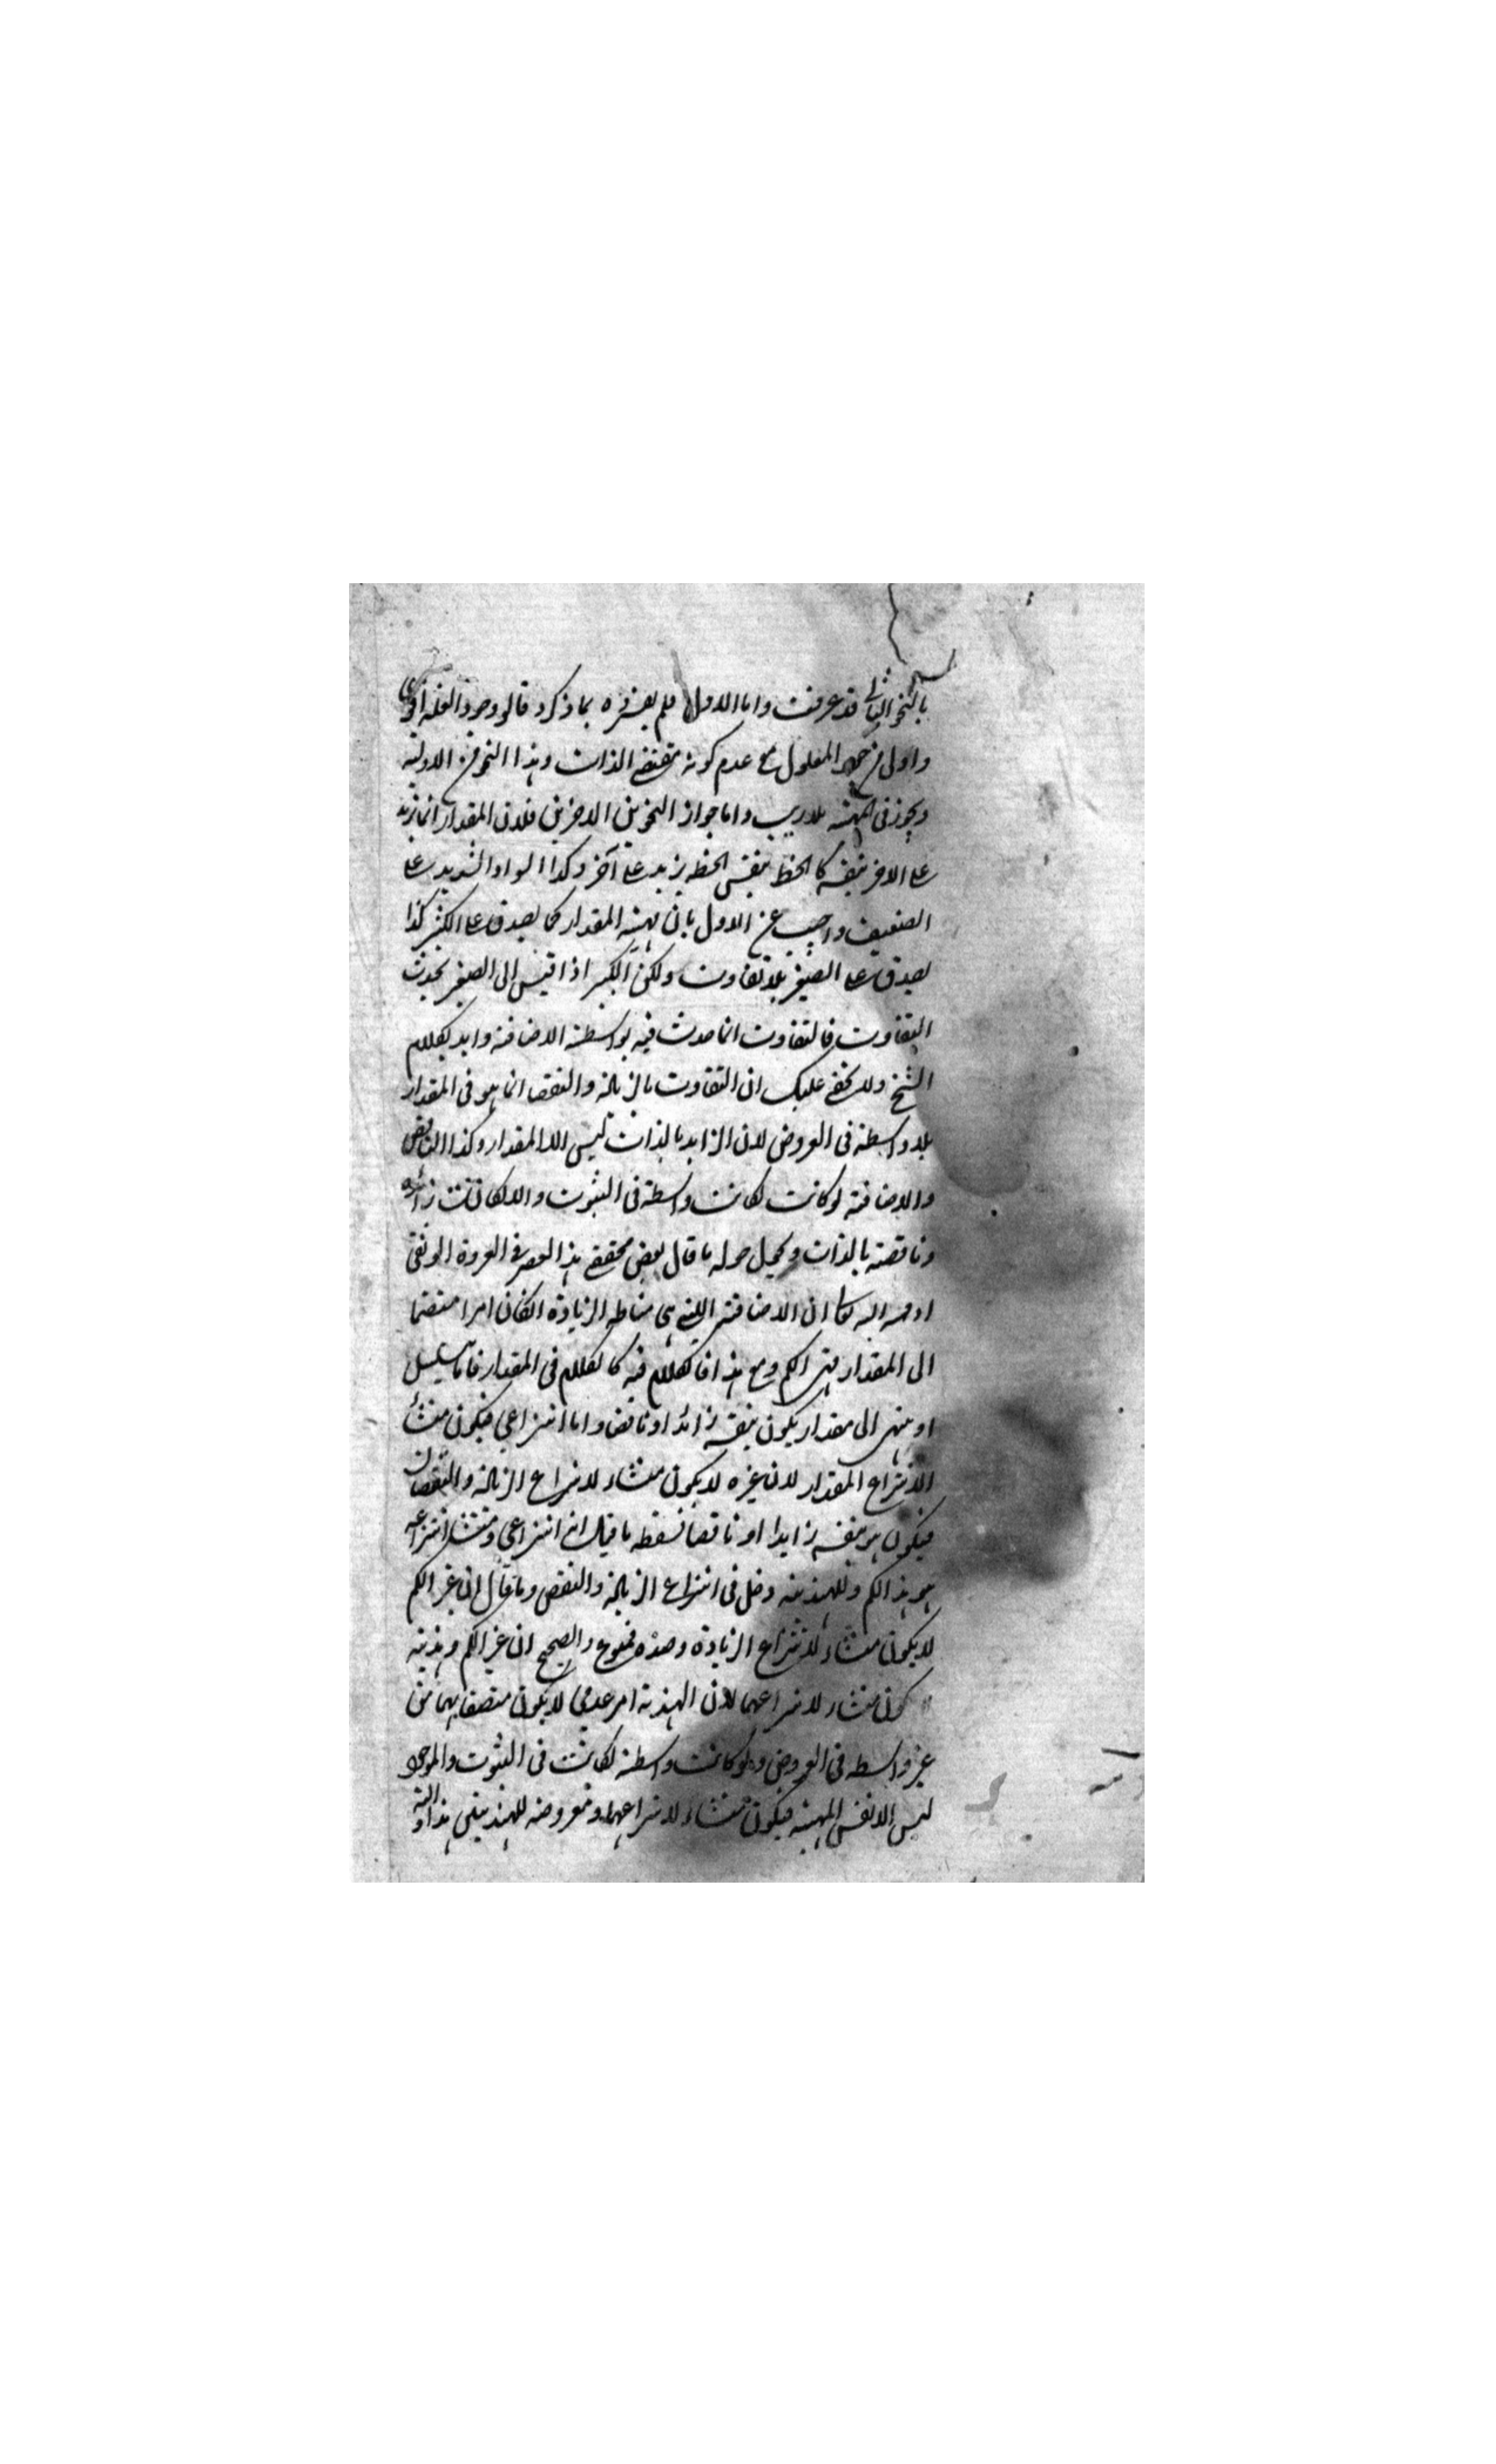 بالنحو الثاني قد عرفت واما الاول فلم يضره بما ذكره قالو وجود العلة اقوى
واولى من المعلول مع عدم كونه مقتضى الذات وهذا النحو من الاولية
ويجوز في المهية بلا ريب واما جواز النحوين الاخرين فلان المقدار انما يزيد
على الاخر بنفسه كالخط بنفس الخط يزيد على آخر وكذا السواد الشديد على
الضعيف واجيب عن الاول بان مهية المقدار كما يصدق على الكثير كذا
يصدق على الصغير بلا تفاوت ولكن الكبير اذا قيس الى الصغير يحدث
التفاوت فالتفاوت انما حدث فيه بواسطة الاضافة وايد بكلام
الشيخ ولا يخفى عليك ان التفاوت بالزيادة والنقصان انما هو في المقدار
بلا واسطة في العروض لان الزايد بالذات ليس الا المقدار وكذا الناقص
والاضافة لو كانت لكانت واسطة في الثبوت والا لكانت زائدة
وناقصة بالذات ويحيل حوله ما قال بعض محققي هذا العصر في العروة الوثقى
ان الاضافة التي هي مناط الزيادة انكان امرا منضما
الى المقدار فهي الكم ومع هذا فالكلام فيه كالكلام في المقدار فاما يتسلسل
او ينتهي الى مقدار يكون بنفسه زائدا او ناقصا واما انتزاعي فيكون منشأ
الانتزاع المقدار لان غيره لا يكون منشاء لانتزاع الزيادة والنقصان
فيكون هو بنفسه زايدا او ناقصا فسقط ما قيل انه انتزاعي ومنشأ انتزاعه
هو هذا الكم وللهذية دخل في انتزاع الزيادة والنقص وما قال ان غير الكم
لا يكون منشاء لانتزاع الزيادة وحده فممنوع والصحيح ان غير الكم وهذيته
كون منشاء لانتزاعهما لان الهذية امر عدمي لا يكون متصفا بهما من
غير واسطة في العروض ولو كانت واسطة لكانت في الثبوت والموجود
ليس الا نفس المهية فيكون منشاء لانتزاعهما ومعروضه للهذيتين هذا و